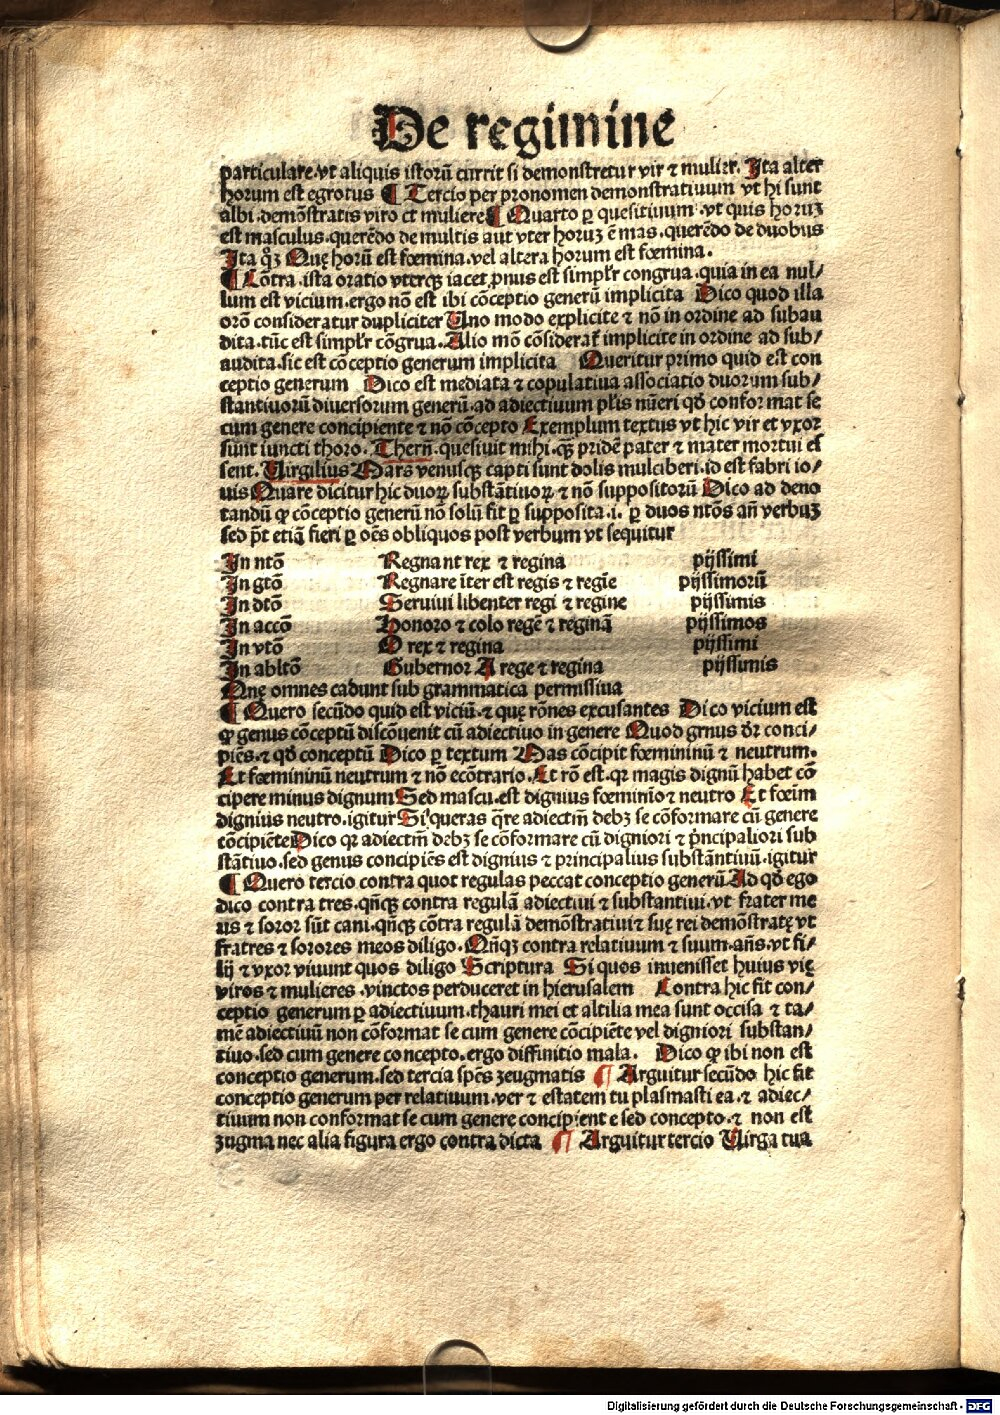 De regimine
particulare.vt aliquis istorū currit si demonstretur vir ⁊ mulier. Ita alter
horum est egrotus ¶ Tercio per pronomen demonstratiuum vt hi sunt
albi.demōstratis viro et muliere ¶ Quarto ꝑ quesitiuum.vt quis horuꝫ
est masculus.querēdo de multis aut vter horuꝫ ē mas.querēdo de duobus
Ita qꝫ Quę horū est fœmina.vel altera horum est fœmina.
¶ Cōtra.ista oratio vterqꝫ iacet ꝓnus est simplr̄ congrua.quia in ea nul/
lum est vicium.ergo nō est ibi cōceptio generū implicita Dico quod illa
orō consideratur dupliciter Uno modo explicite ⁊ nō in ordine ad subau
dita.tūc est simplr̄ cōgrua.Alio mō cōsiderat̄ implicite in ordine ad sub/
audita.sic est cōceptio generum implicita Queritur primo quid est con
ceptio generum Dico est mediata ⁊ copulatiua associatio duorum sub/
stantiuorū diuersorum generū.ad adiectiuum pl̄is nūeri qd̄ confor mat se
cum genere concipiente ⁊ nō cōcepto Exemplum textus vt hic vir et vxor
sunt iuncti thoro. Theren̄.quesiuit mihi.qꝫ pridē pater ⁊ mater mortui es
sent. Uirgilius Mars venusqꝫ capti sunt dolis mulciberi.id est fabri io/
uis Quare dicitur hic duoꝝ substātiuoꝝ ⁊ nō suppositorū Dico ad deno
tandū ꝙ cōceptio generū nō solū fit ꝑ supposita.i. ꝑ duos ntōs an̄ verbuꝫ
sed pōt etiā fieri ꝑ oēs obliquos post verbum vt sequitur
In ntō Regnant rex ⁊ regina pijssimi
In gtō Regnare īter est regis ⁊ regīe pijssimorū
In dtō Seruiui libenter regi ⁊ regine pijssimis
In accō Honoro ⁊ colo regē ⁊ reginā pijssimos
In vtō O rex ⁊ regina pijssimi
In abltō Gubernor A rege ⁊ regina pijssimis
Que omnes cadunt sub grammatica permissiua
¶ Quero secūdo quid est viciū.⁊ quę rōnes excusantes Dico vicium est
ꝙ genus cōceptū discōuenit cū adiectiuo in genere Quod gn̄us dr̄ conci/
piēs.⁊ qd̄ conceptū Dico ꝑ textum Mas cōcipit fœmininū ⁊ neutrum.
Et fœmininū neutrum ⁊ nō econtrario.Et rō est.qr magis dignū habet cō
cipere minus dignum Sed mascu.est dignius fœminīo ⁊ neutro Et fœim̄
dignius neutro.igitur Si queras q̄re adiectm̄ debꝫ se cōformare cū genere
cōcipiēte Dico qr adiectm̄ debꝫ se cōformare cū digniori ⁊ pn̄cipaliori sub
stātiuo.sed genus concipiēs est dignius ⁊ principalius substātiuū.igitur
¶ Quero tercio contra quot regulas peccat conceptio generū Ad qd̄ ego
dico contra tres.qn̄qꝫ contra regulā adiectiui ⁊ substantiui.vt frater me
us ⁊ soror sūt cani.qn̄qꝫ cōtra regulā demōstratiui ⁊ suę rei demōstratę vt
fratres ⁊ sorores meos diligo.Qn̄qꝫ contra relatiuum ⁊ suum.an̄s.vt fi/
lij ⁊ vxor viuunt quos diligo Scriptura Si quos inuenisset huius vię
viros ⁊ mulieres.vinctos perduceret in hierusalem Contra hic fit con/
ceptio generum ꝑ adiectiuum.thauri mei et altilia mea sunt occisa ⁊ ta/
mē adiectiuū non cōformat se cum genere cōcipiēte vel digniori substan/
tiuo.sed cum genere concepto.ergo diffinitio mala. Dico ꝙ ibi non est
conceptio generum.sed tercia spēs zeugmatis ¶ Arguitur secūdo hic fit
conceptio generum per relatiuum.ver ⁊ estatem tu plasmasti ea.⁊ adiec/
tiuum non conformat se cum genere concipient e sed concepto.⁊ non est
zugma nec alia figura ergo contra dicta ¶ Arguitur tercio Uirga tua
Digitalisierung gefördert durch die Deutsche Forschungsgemeinschaft - DFG